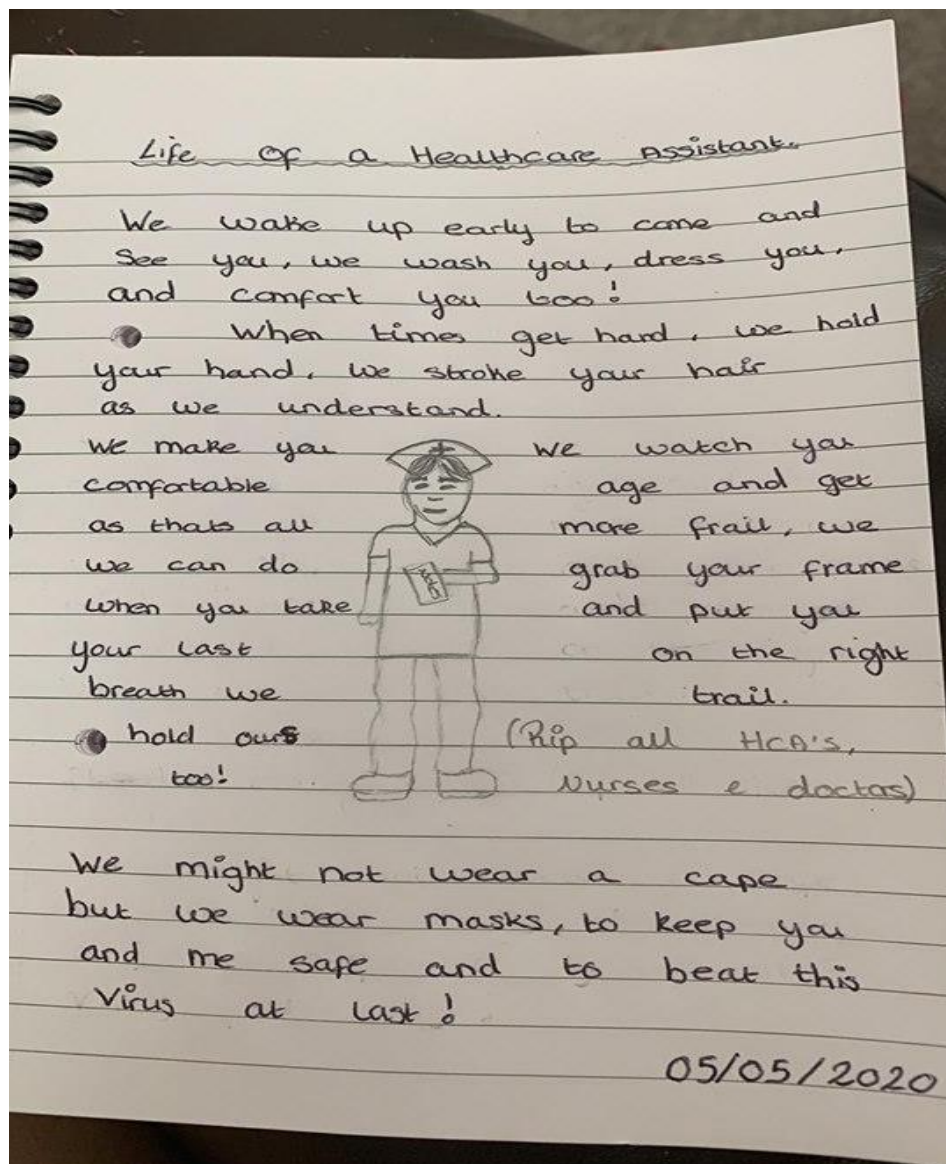 Life of a Healthcare Assistant.
We wake up early to come and
See you, we wash you, dress you,
and comfort you too!
When times get hard, we hold
your hand, we stroke your hair
as we understand.
we make you
comfortable
as thats all
we can do
when you take
your last
breath we
hold ours
too!
we watch you
age and get
more frail, we
grab your frame
and put you
on the right
trail.
(Rip all HCA's,
Nurses & doctors)
We might not wear a cape
but we wear masks, to keep you
and me safe and to beat this
Virus at last!
05/05/2020